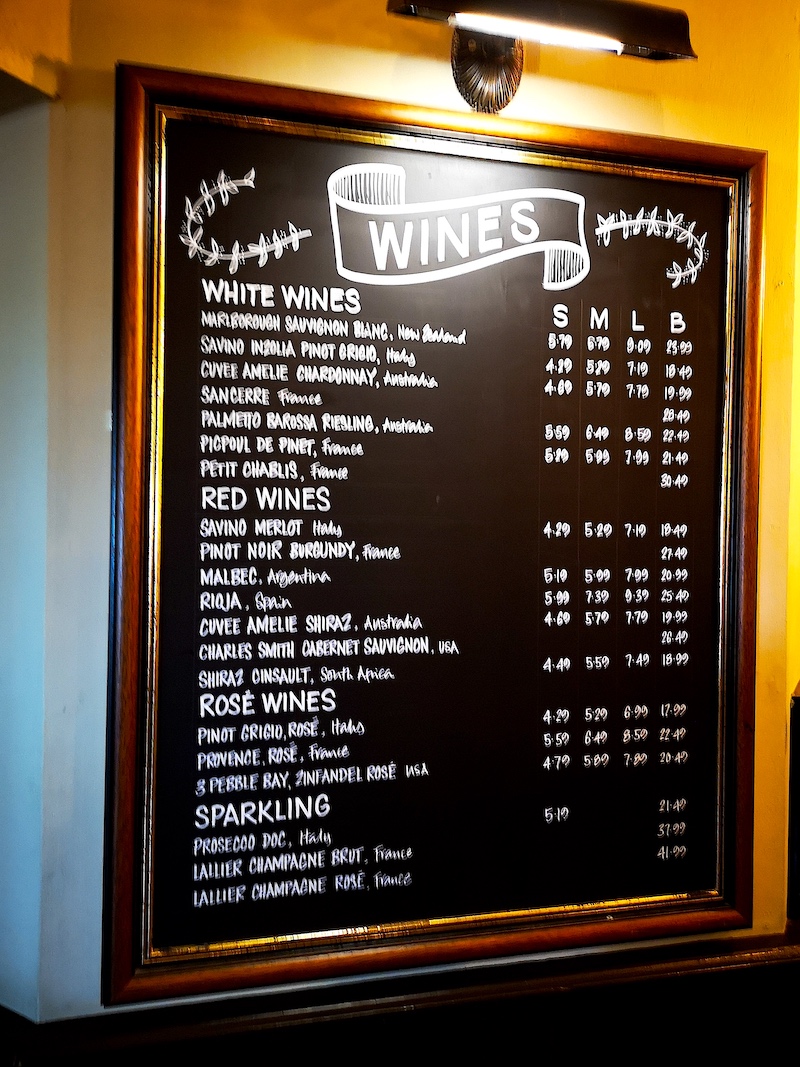 WINES
WHITE WINES S M L B
MARLBOROUGH SAUVIGNON BLANC, New Zealand 5.79 6.79 9.09 23.99
SAVINO INZOLIA PINOT GRIGIO, Italy 4.29 5.29 7.19 18.49
CUVEE AMELIE CHARDONNAY, Australia 4.69 5.79 7.79 19.99
SANCERRE France 28.49
PALMETTO BAROSSA RIESLING, Australia 5.59 6.49 8.59 22.49
PICPOUL DE PINET, France 5.29 5.99 7.99 21.49
PETIT CHABLIS, France 30.49
RED WINES
SAVINO MERLOT Italy 4.29 5.29 7.19 18.49
PINOT NOIR BURGUNDY, France 27.49
MALBEC, Argentina 5.19 5.99 7.99 20.99
RIOJA, Spain 5.99 7.39 9.39 25.49
CUVEE AMELIE SHIRAZ, Australia 4.69 5.79 7.79 19.99
CHARLES SMITH CABERNET SAUVIGNON, USA 26.49
SHIRAZ CINSAULT, South Africa 4.49 5.59 7.49 18.99
ROSÉ WINES
PINOT GRIGIO, ROSÉ, Italy 4.29 5.29 6.99 17.99
PROVENCE, ROSÉ, France 5.59 6.49 8.59 22.49
3 PEBBLE BAY, ZINFANDEL ROSÉ USA 4.79 5.89 7.89 20.49
SPARKLING
PROSECCO DOC, Italy 5.19 21.49
LALLIER CHAMPAGNE BRUT, France 37.99
LALLIER CHAMPAGNE ROSÉ, France 41.99